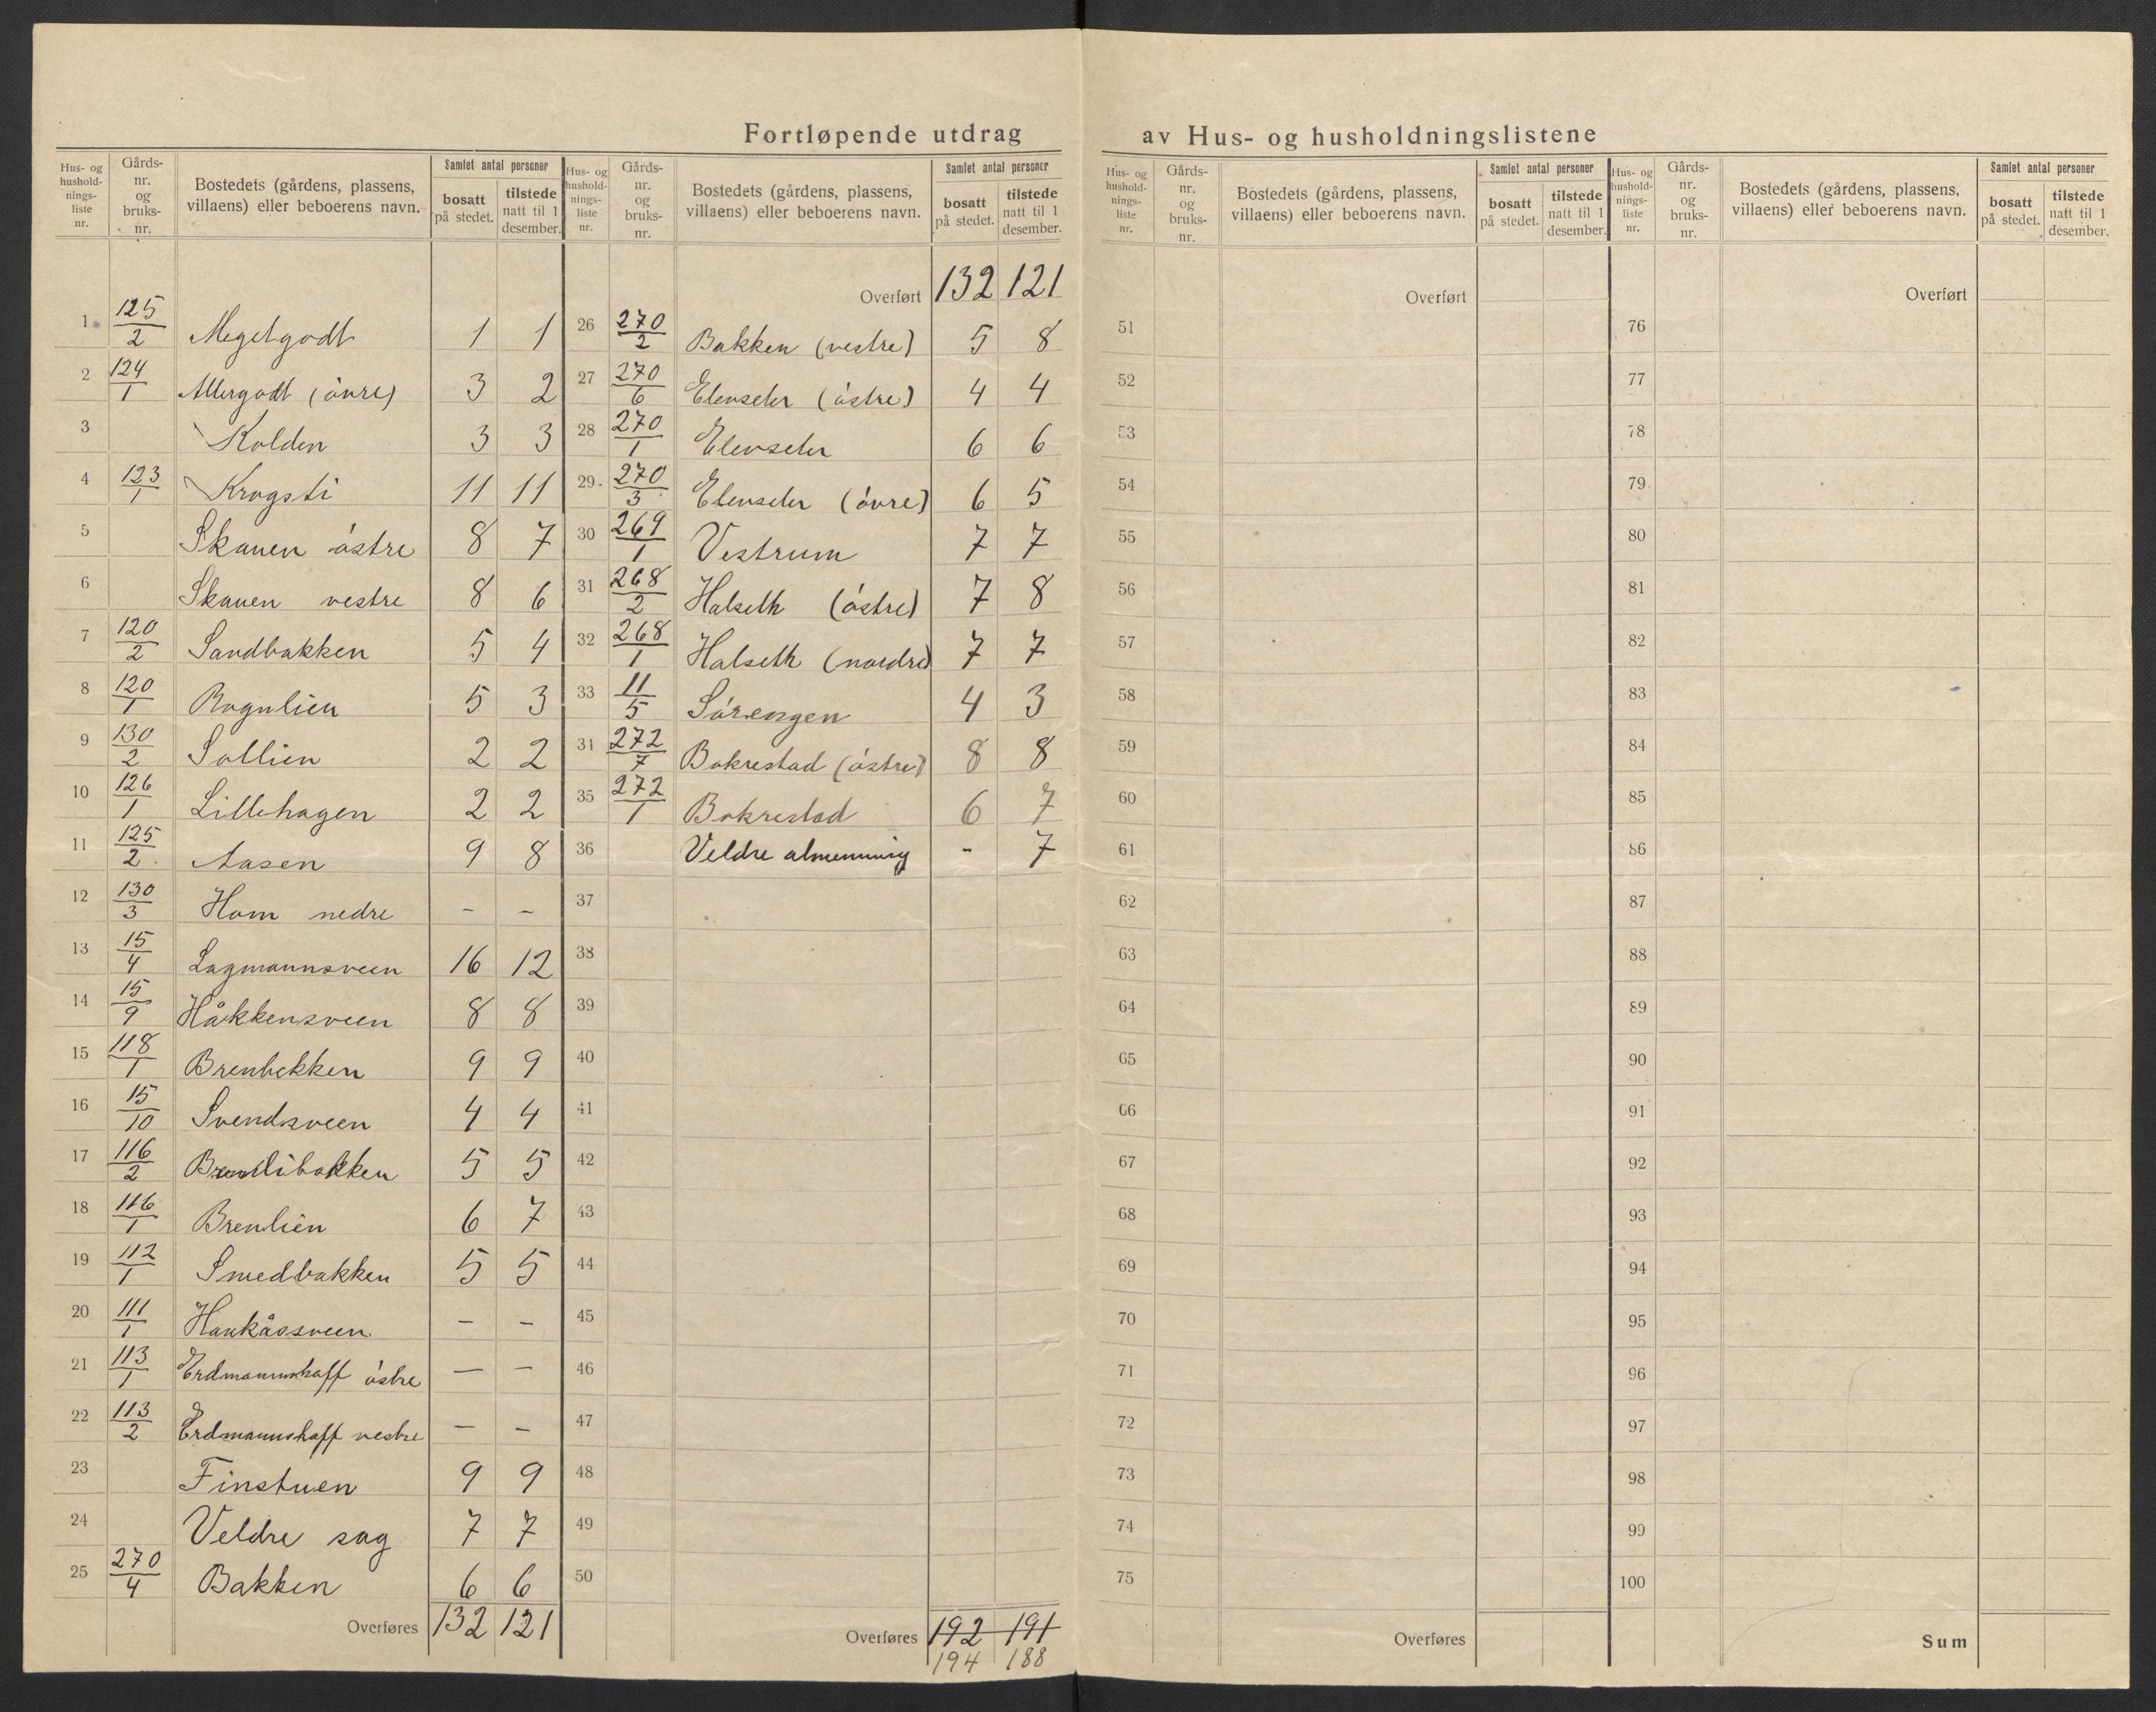 Fortløpende utdrag av Hus- og husholdningslistene
Hus- og husholdningsliste nr. Gårdsnr. og bruksnr. Bostedets (gårdens, plassens, villaens) eller beboerens navn. Samlet antal personer bosatt på stedet. tilstede natt til 1 desember.
1 125/2 Megetgodt 1 1
2 124/1 Allergodt (övre) 3 2
3 Kolden 3 3
4 123/1 Krogsti 11 11
5 Skauen östre 8 7
6 Skauen vestre 8 6
7 120/2 Sandbakken 5 4
8 120/1 Rognlien 5 3
9 130/2 Sollien 2 2
10 126/1 Lillehagen 2 2
11 125/2 Aasen 9 8
12 130/3 Hom nedre - -
13 15/4 Lagmannsveen 16 12
14 15/9 Håkkensveen 8 8
15 118/1 Brenbekken 9 9
16 15/10 Svendsveen 4 4
17 116/2 Brenlibakken 5 5
18 116/1 Brenlien 6 7
19 112/1 Smedbakken 5 5
20 111/1 Haukåssveen - -
21 113/1 Erdmannshaff östre - -
22 113/2 Erdmannshaff vestre - -
23 Finstuen 9 9
24 Veldre sag 7 7
25 270/4 Bakken 6 6
Overføres 132 121
Hus- og husholdningsliste nr. Gårdsnr. og bruksnr. Bostedets (gårdens, plassens, villaens) eller beboerens navn. Samlet antal personer bosatt på stedet. tilstede natt til 1 desember.
Overført 132 121
26 270/2 Bakken (vestre) 5 8
27 270/6 Elenseter (östre) 4 4
28 270/1 Elevseter 6 6
29 270/3 Elenseter (övre) 6 5
30 269/1 Vestrum 7 7
31 268/2 Halseth (östre) 7 8
32 268/1 Halseth (nordre) 7 7
33 11/5 Sörengen 4 3
34 272/7 Bakrestad (östre) 8 8
35 272/1 Bakrestad 6 7
36 Veldre almenning - 7
37
38
39
40
41
42
43
44
45
46
47
48
49
50
Overføres 192 191
194 188
Hus- og husholdningsliste nr. Gårdsnr. og bruksnr. Bostedets (gårdens, plassens, villaens) eller beboerens navn. Samlet antal personer bosatt på stedet. tilstede natt til 1 desember.
Overført
51
52
53
54
55
56
57
58
59
60
61
62
63
64
65
66
67
68
69
70
71
72
73
74
75
Overføres
Hus- og husholdningsliste nr. Gårdsnr. og bruksnr. Bostedets (gårdens, plassens, villaens) eller beboerens navn. Samlet antal personer bosatt på stedet. tilstede natt til 1 desember.
Overført
76
77
78
79
80
81
82
83
84
85
86
87
88
89
90
91
92
93
94
95
96
97
98
99
100
Sum